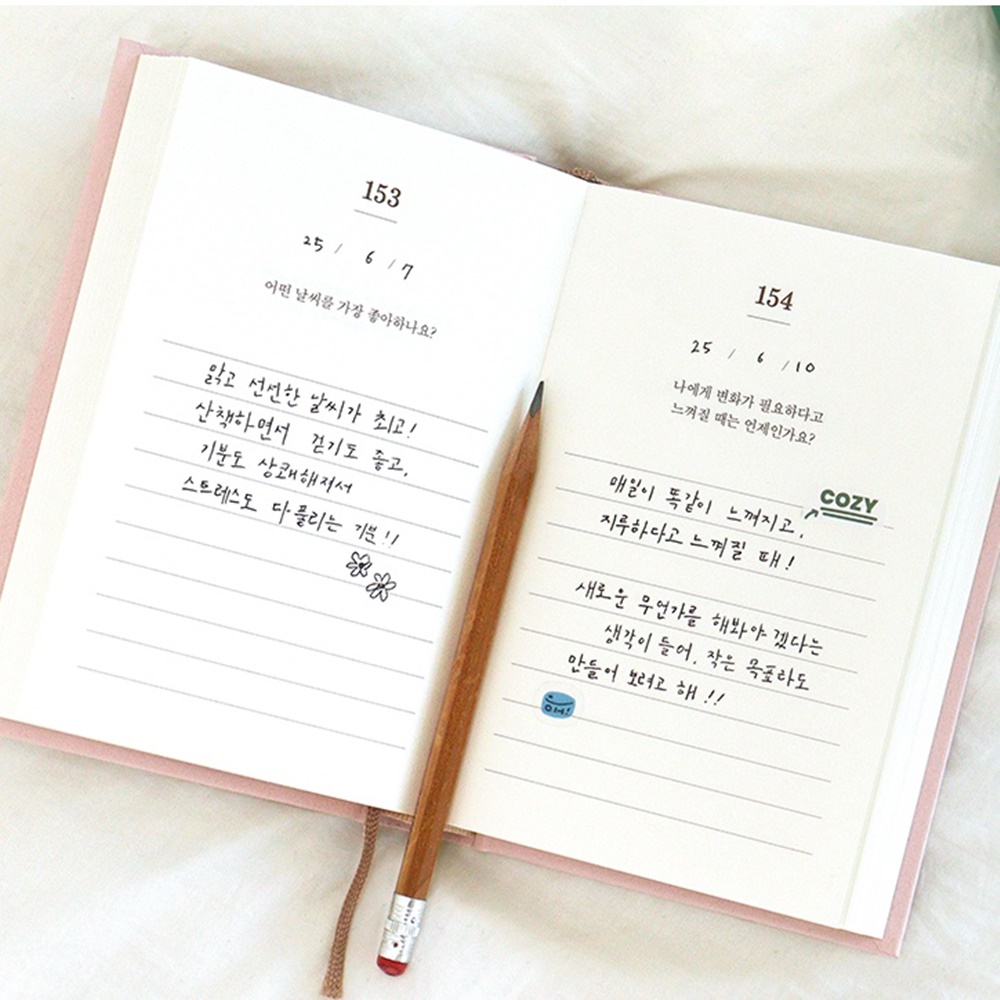 153
25 / 6 / 7
어떤 날씨를 가장 좋아하나요?
맑고 선선한 날씨가 최고!
산책하면서 걷기도 좋고,
기분도 상쾌해져서
스트레스도 다 풀리는 기분!!
154
25 / 6 / 10
나에게 변화가 필요하다고
느껴질 때는 언제인가요?
매일이 똑같이 느껴지고,
COZY
지루하다고 느껴질 때!
새로운 무언가를 해봐야 겠다는
생각이 들어. 작은 목표라도
만들어 보려고 해!!